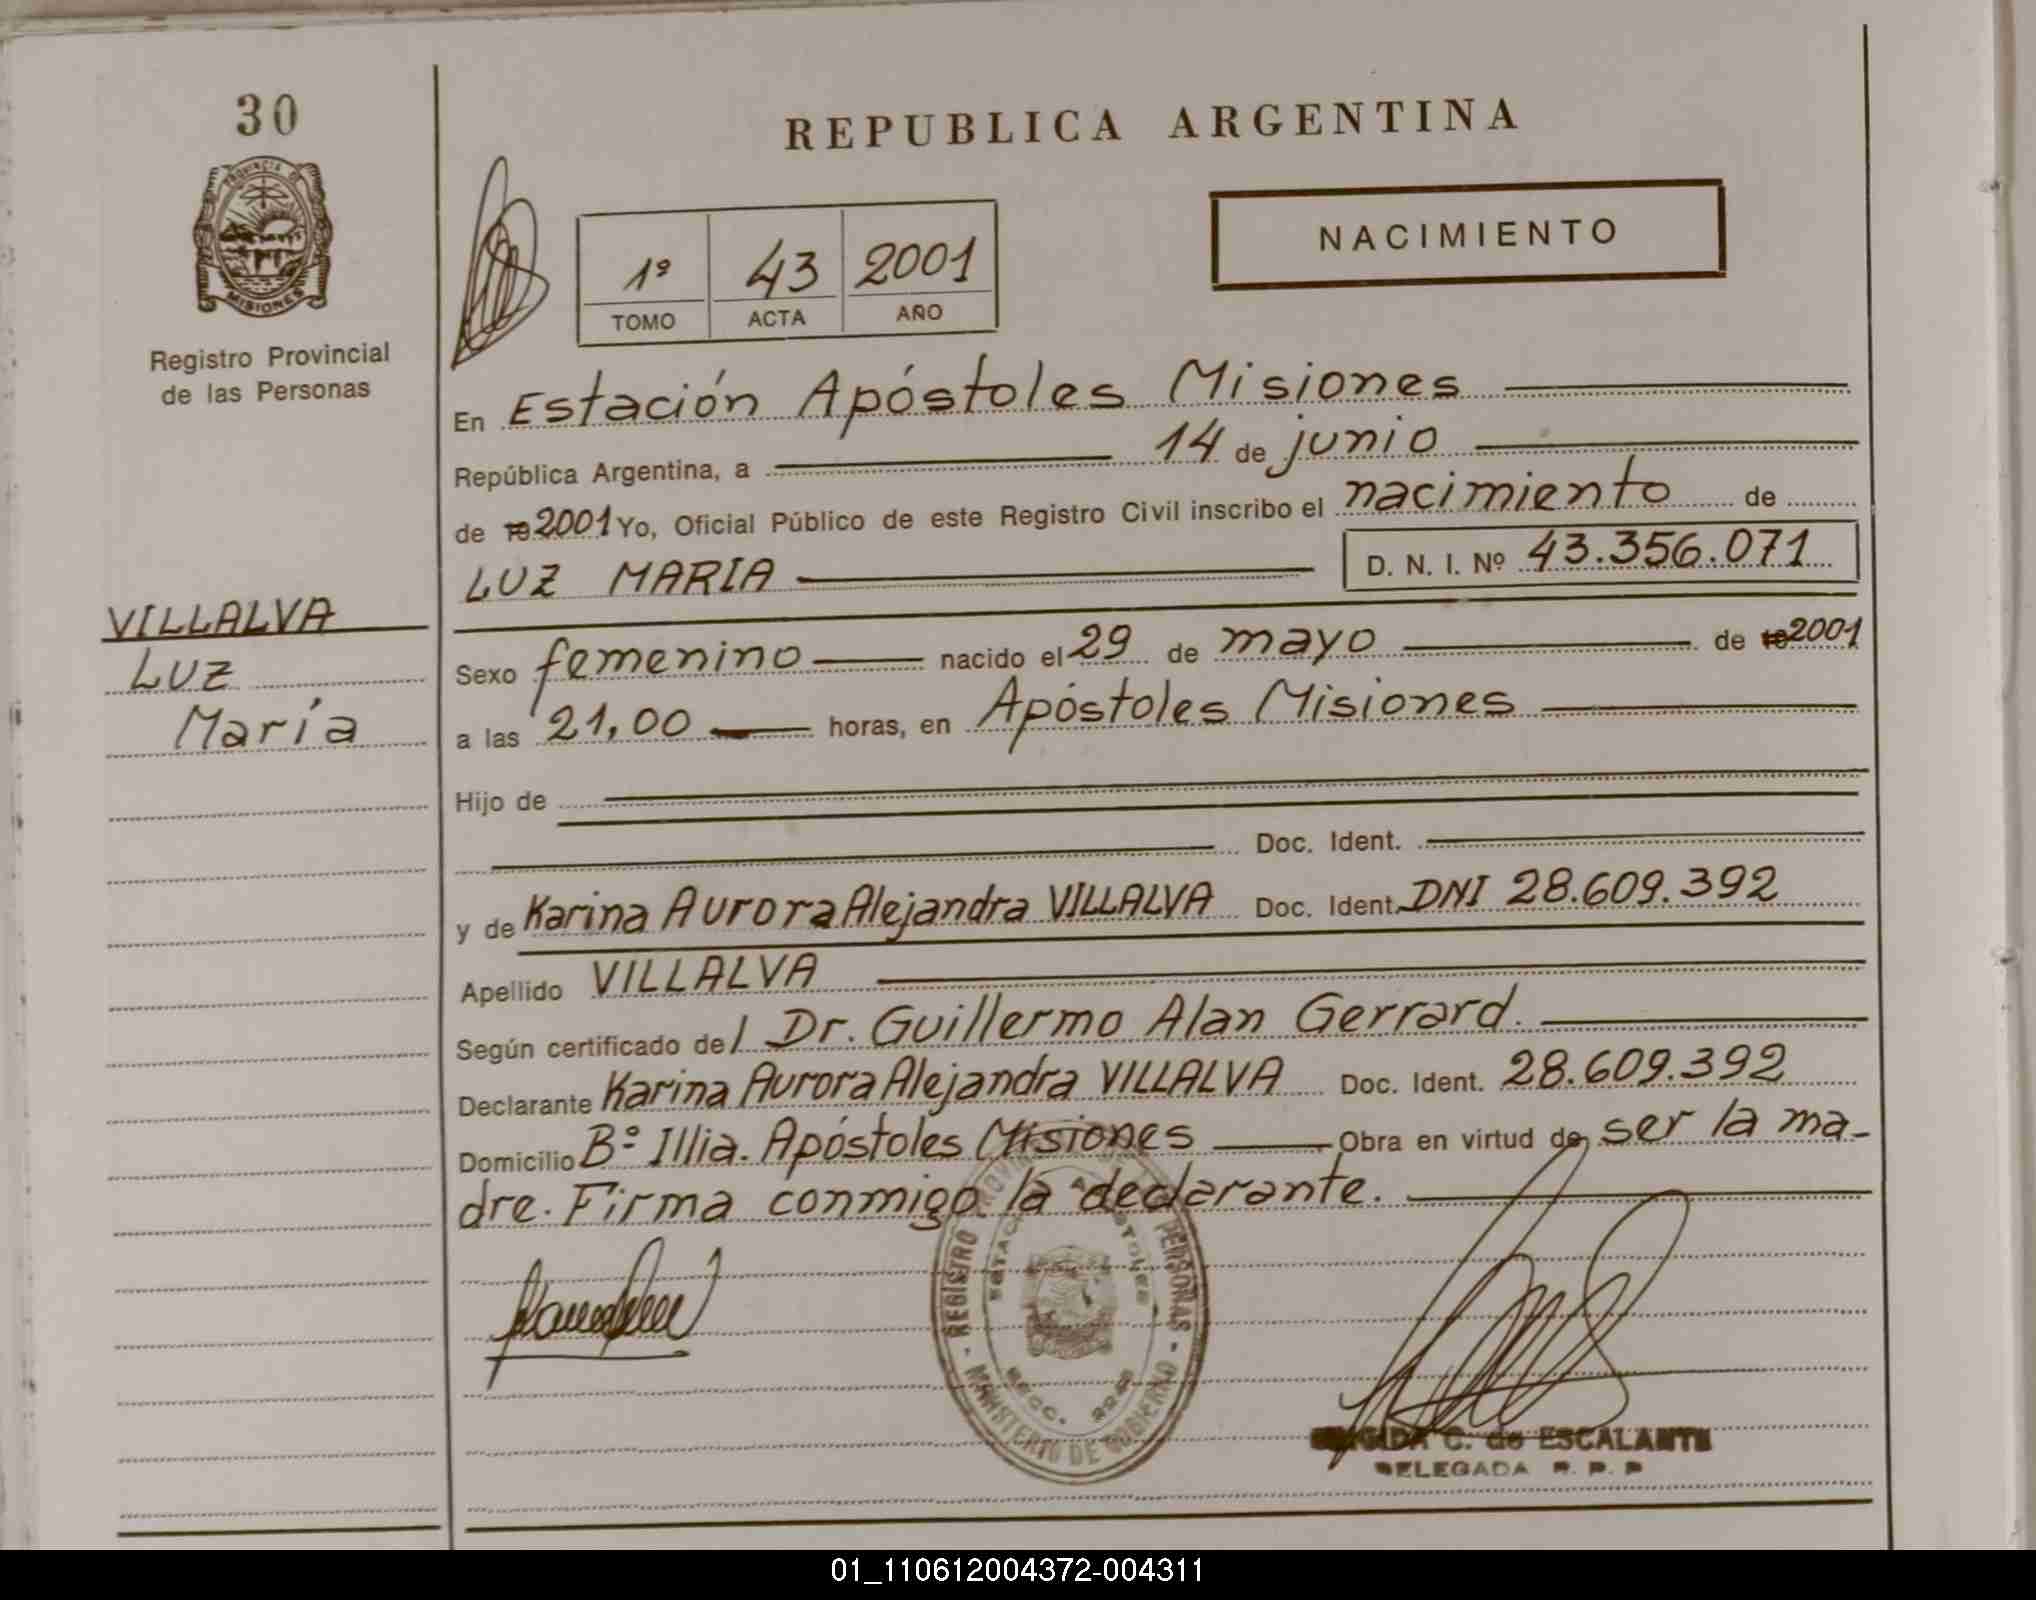 30
PROVINCIA DE
MISIONES
Registro Provincial
de las Personas
VILLALVA
LUZ
María
REPUBLICA ARGENTINA
NACIMIENTO
1º 43 2001
TOMO ACTA AÑO
En Estación Apóstoles Misiones
República Argentina, a 14 de junio
de 19 2001 Yo, Oficial Público de este Registro Civil inscribo el nacimiento de
LUZ MARIA D. N. I. Nº 43.356.071
Sexo femenino nacido el 29 de mayo de 19 2001
a las 21,00 horas, en Apóstoles Misiones
Hijo de
Doc. Ident.
y de Karina Aurora Alejandra VILLALVA Doc. Ident. DNI 28.609.392
Apellido VILLALVA
Según certificado del Dr. Guillermo Alan Gerrard.
Declarante Karina Aurora Alejandra VILLALVA Doc. Ident. 28.609.392
Domicilio Bº Illia. Apóstoles Misiones Obra en virtud de ser la ma-
dre. Firma conmigo la declarante.
REGISTRO PERSONAS
MINISTERIO DE GOBIERNO
C. de ESCALANTE
DELEGADA R. P. P
01_110612004372-004311